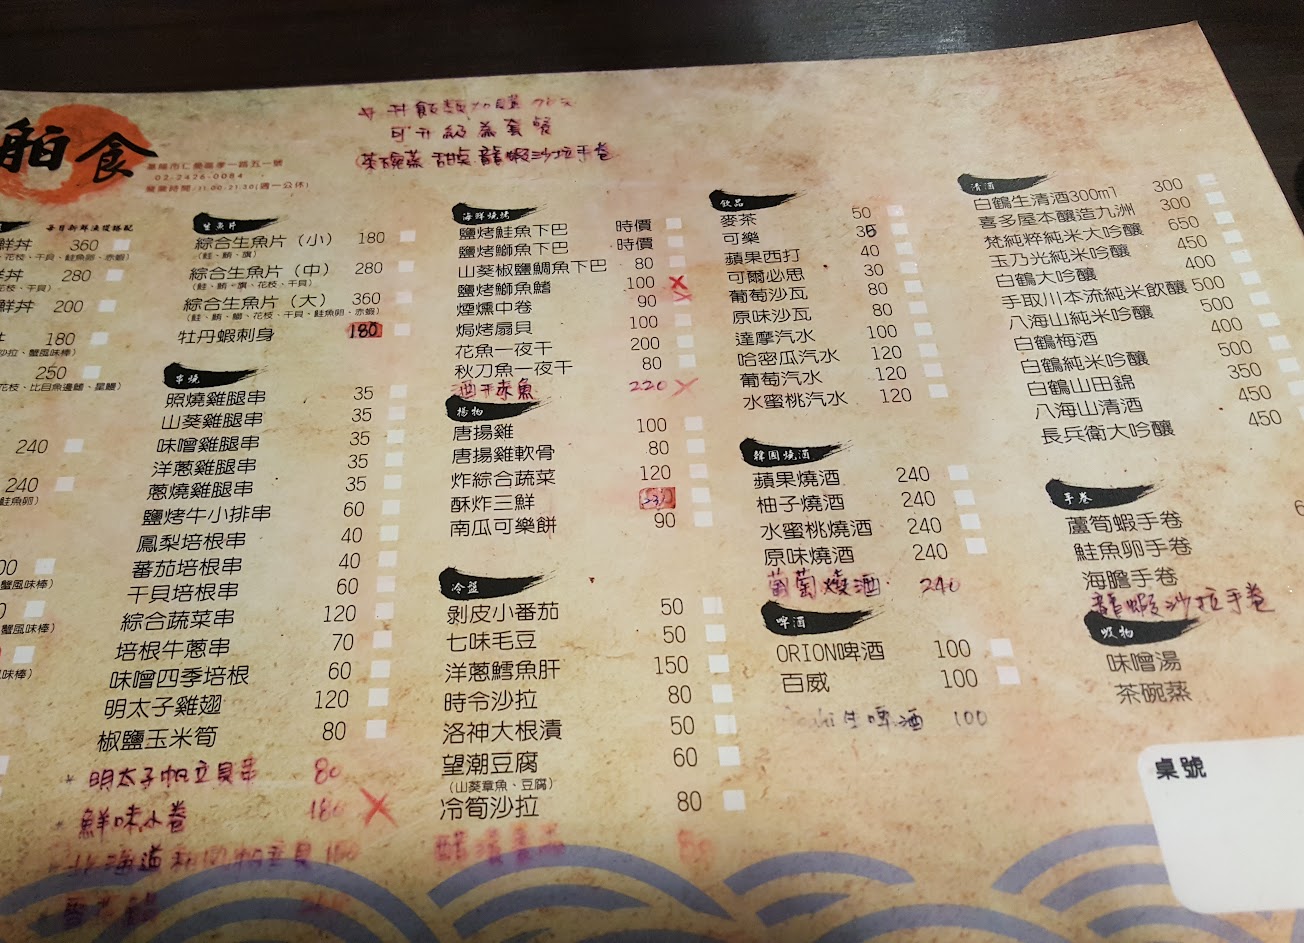 舶食
基隆市仁愛區孝一路五一號
02-2426-0084
營業時間/11:00-21:30(週一公休)
可升級為套餐
茶碗蒸 甜點 龍蝦沙拉手卷
每日新鮮漁獲搭配
鮮丼 360
花枝、干貝、鮭魚卵、赤蝦)
鮮丼 280
花枝、干貝)
鮮丼 200
丼 180
沙拉、蟹風味棒)
250
花枝、比目魚邊鰭、星鰻)
240
240
鮭魚卵)
蟹風味棒)
蟹風味棒)
味棒)
生魚片
綜合生魚片（小） 180
(鮭、鮪、旗)
綜合生魚片（中） 280
(鮭、鮪、旗、花枝、干貝)
綜合生魚片（大） 360
(鮭、鮪、鰤、花枝、干貝、鮭魚卵、赤蝦)
牡丹蝦刺身 180
串燒
照燒雞腿串 35
山葵雞腿串 35
味噌雞腿串 35
洋蔥雞腿串 35
蔥燒雞腿串 35
鹽烤牛小排串 60
鳳梨培根串 40
蕃茄培根串 40
干貝培根串 60
綜合蔬菜串 120
培根牛蔥串 70
味噌四季培根 60
明太子雞翅 120
椒鹽玉米筍 80
*明太子帆立貝串 80
鮮味小卷 180
北海道 帆立貝 100
海鮮燒烤
鹽烤鮭魚下巴 時價
鹽烤鰤魚下巴 時價
山葵椒鹽鯛魚下巴 80
鹽烤鰤魚鰭 100
煙燻中卷 90
焗烤扇貝 100
花魚一夜干 200
秋刀魚一夜干 80
220
揚物
唐揚雞 100
唐揚雞軟骨 80
炸綜合蔬菜 120
酥炸三鮮
南瓜可樂餅 90
冷盤
剝皮小番茄 50
七味毛豆 50
洋蔥鱈魚肝 150
時令沙拉 80
洛神大根漬 50
望潮豆腐 60
(山葵章魚、豆腐)
冷筍沙拉 80
80
飲品
麥茶 50
可樂 35
蘋果西打 40
可爾必思 30
葡萄沙瓦 80
原味沙瓦 80
達摩汽水 100
哈密瓜汽水 120
葡萄汽水 120
水蜜桃汽水 120
韓國燒酒
蘋果燒酒 240
柚子燒酒 240
水蜜桃燒酒 240
原味燒酒 240
葡萄燒酒 240
啤酒
ORION啤酒 100
百威 100
生啤酒 100
清酒
白鶴生清酒300ml 300
喜多屋本釀造九洲 300
梵純粹純米大吟釀 650
玉乃光純米吟釀 450
白鶴大吟釀 400
手取川本流純米飲釀 500
八海山純米吟釀 500
白鶴梅酒 400
白鶴純米吟釀 500
白鶴山田錦 350
八海山清酒 450
長兵衛大吟釀 450
手卷
蘆筍蝦手卷
鮭魚卵手卷
海膽手卷
龍蝦沙拉手卷
吸物
味噌湯
茶碗蒸
桌號